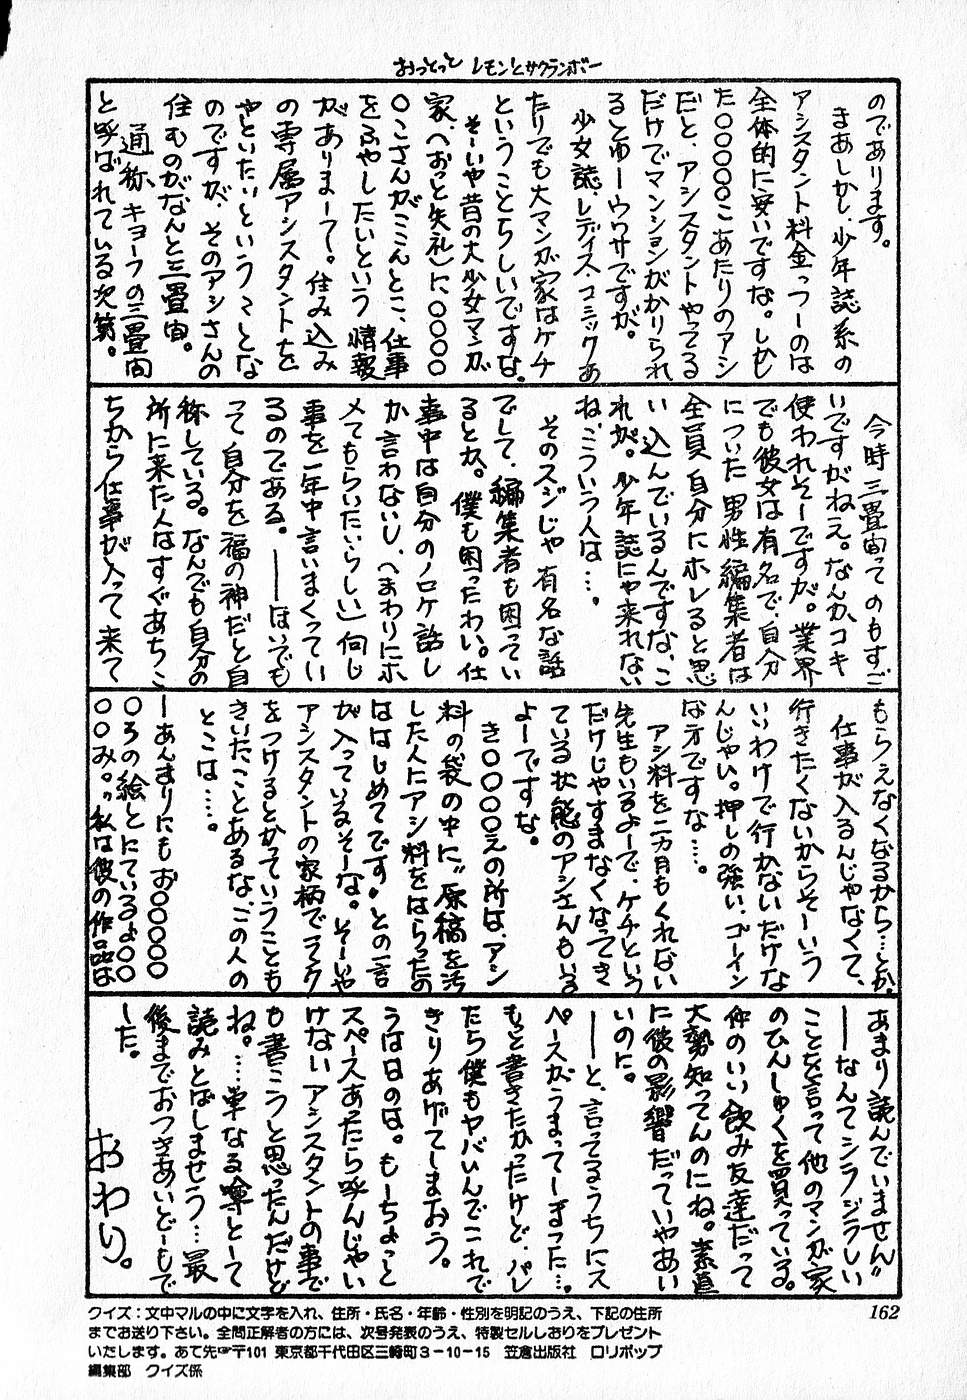 おっとっと レモンとサクランボー
のであります。
まあしかし、少年誌系の
アシスタント料金っつーのは
全体的に安いですな。しかし
た〇〇〇〇こあたりのアシ
だと、アシスタントやってる
だけでマンションがかりられ
るとゆーウワサですが。
少女誌、レディスコミックあ
たりでも大マンガ家はケチ
ということらしいですな。
そーいや昔の大少女マンガ
家、(おっと失礼)に〇〇〇〇
〇こさんがこんとこ、仕事
をふやしたいという情報
がありまーて。住み込み
の専属アシスタントを
やといたいということな
のですが、そのアシさんの
住むのがなんと三畳間。
通称キョーフの三畳間
と呼ばれている次第。
今時三畳間ってのもすご
いですがねえ。なんかコキ
使われそーですが。業界
でも彼女は有名で、自分
についた男性編集者は
全員、自分にホレると思
い込んでいるんですな、こ
れが。少年誌にゃ来れない
ね、こういう人は…。
そのスジじゃ有名な話
でして、編集者も困ってい
るとか。僕も困ったわい。仕
事中は自分のノロケ話し
か言わないし、(まわりにホ
メてもらいたいらしい)同じ
事を一年中言いまくってい
るのである。──ほいでも
って自分を福の神だと自
称している。なんでも自分の
所に来た人はすぐあちこ
ちから仕事が入って来て
もらえなくなるから…とか。
仕事が入るんじゃなくて、
行きたくないからそーいう
いいわけで行かないだけな
んじゃい。押しの強い、ゴーイン
な方ですな…。
アシ料を二カ月もくれない
先生もいるよーで、ケチという
だけじゃすまなくなってき
ている状態のアシさんもいる
よーですな。
き〇〇〇〇えの所は、アシ
料の袋の中に〝原稿を汚
した人にアシ料をはらったの
ははじめてです〟との一言
が入っているそーな。そーいや
アシスタントの家柄でランク
をつけるとかっていうことも
きいたことあるな、この人の
とこは……。
ーあんまりにもお〇〇〇〇〇
〇ろの絵とにているよ〇〇
〇〇み。〝私は彼の作品は
あまり読んでいません〟
──なんてシラジラしい
ことを言って他のマンガ家
のひんしゅくを買っている。
仲のいい飲み友達だって
大勢知ってんのにね。素直
に彼の影響だっていやあい
いのに。
──と、言ってるうちにス
ペースがうまってーまった…。
もっと書きたかったけど、バレ
たら僕もヤバいんでこれで
きりあげてしまおう。
うは日のは。もーちょっと
スペースあったら呼んじゃい
けないアシスタントの事で
も書こうと思ったんだけど
ね。…単なる噂とーて
読みとばしませう…最
後までおつきあいどーもで
した。
おわり。
162
クイズ：文中マルの中に文字を入れ、住所・氏名・年齢・性別を明記のうえ、下記の住所
までお送り下さい。全問正解者の方には、次号発表のうえ、特製セルしおりをプレゼント
いたします。あて先☞〒101 東京都千代田区三崎町3－10－15 笠倉出版社 ロリポップ
編集部 クイズ係